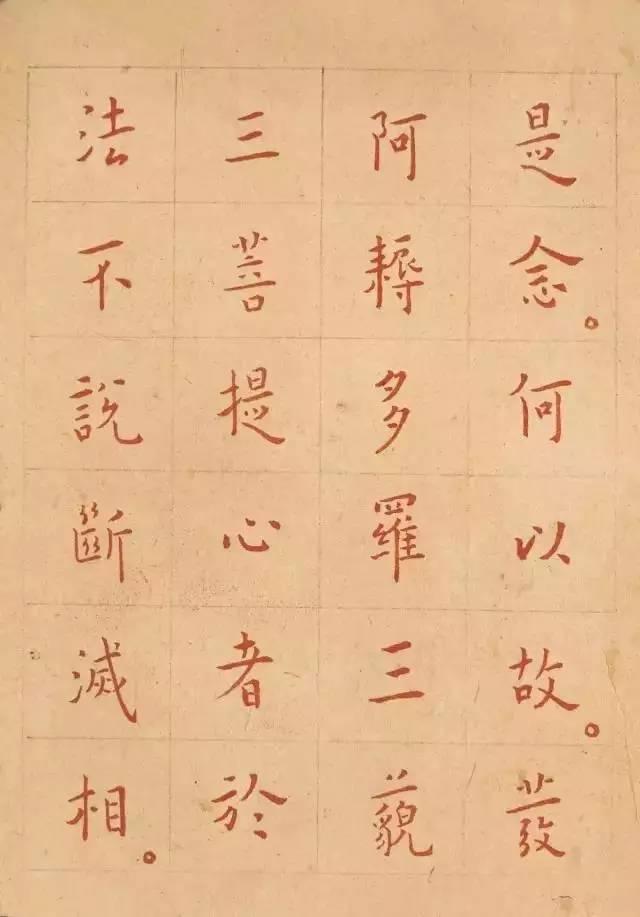 是念。何以故。發
阿耨多羅三藐
三菩提心者於
法不說斷滅相。